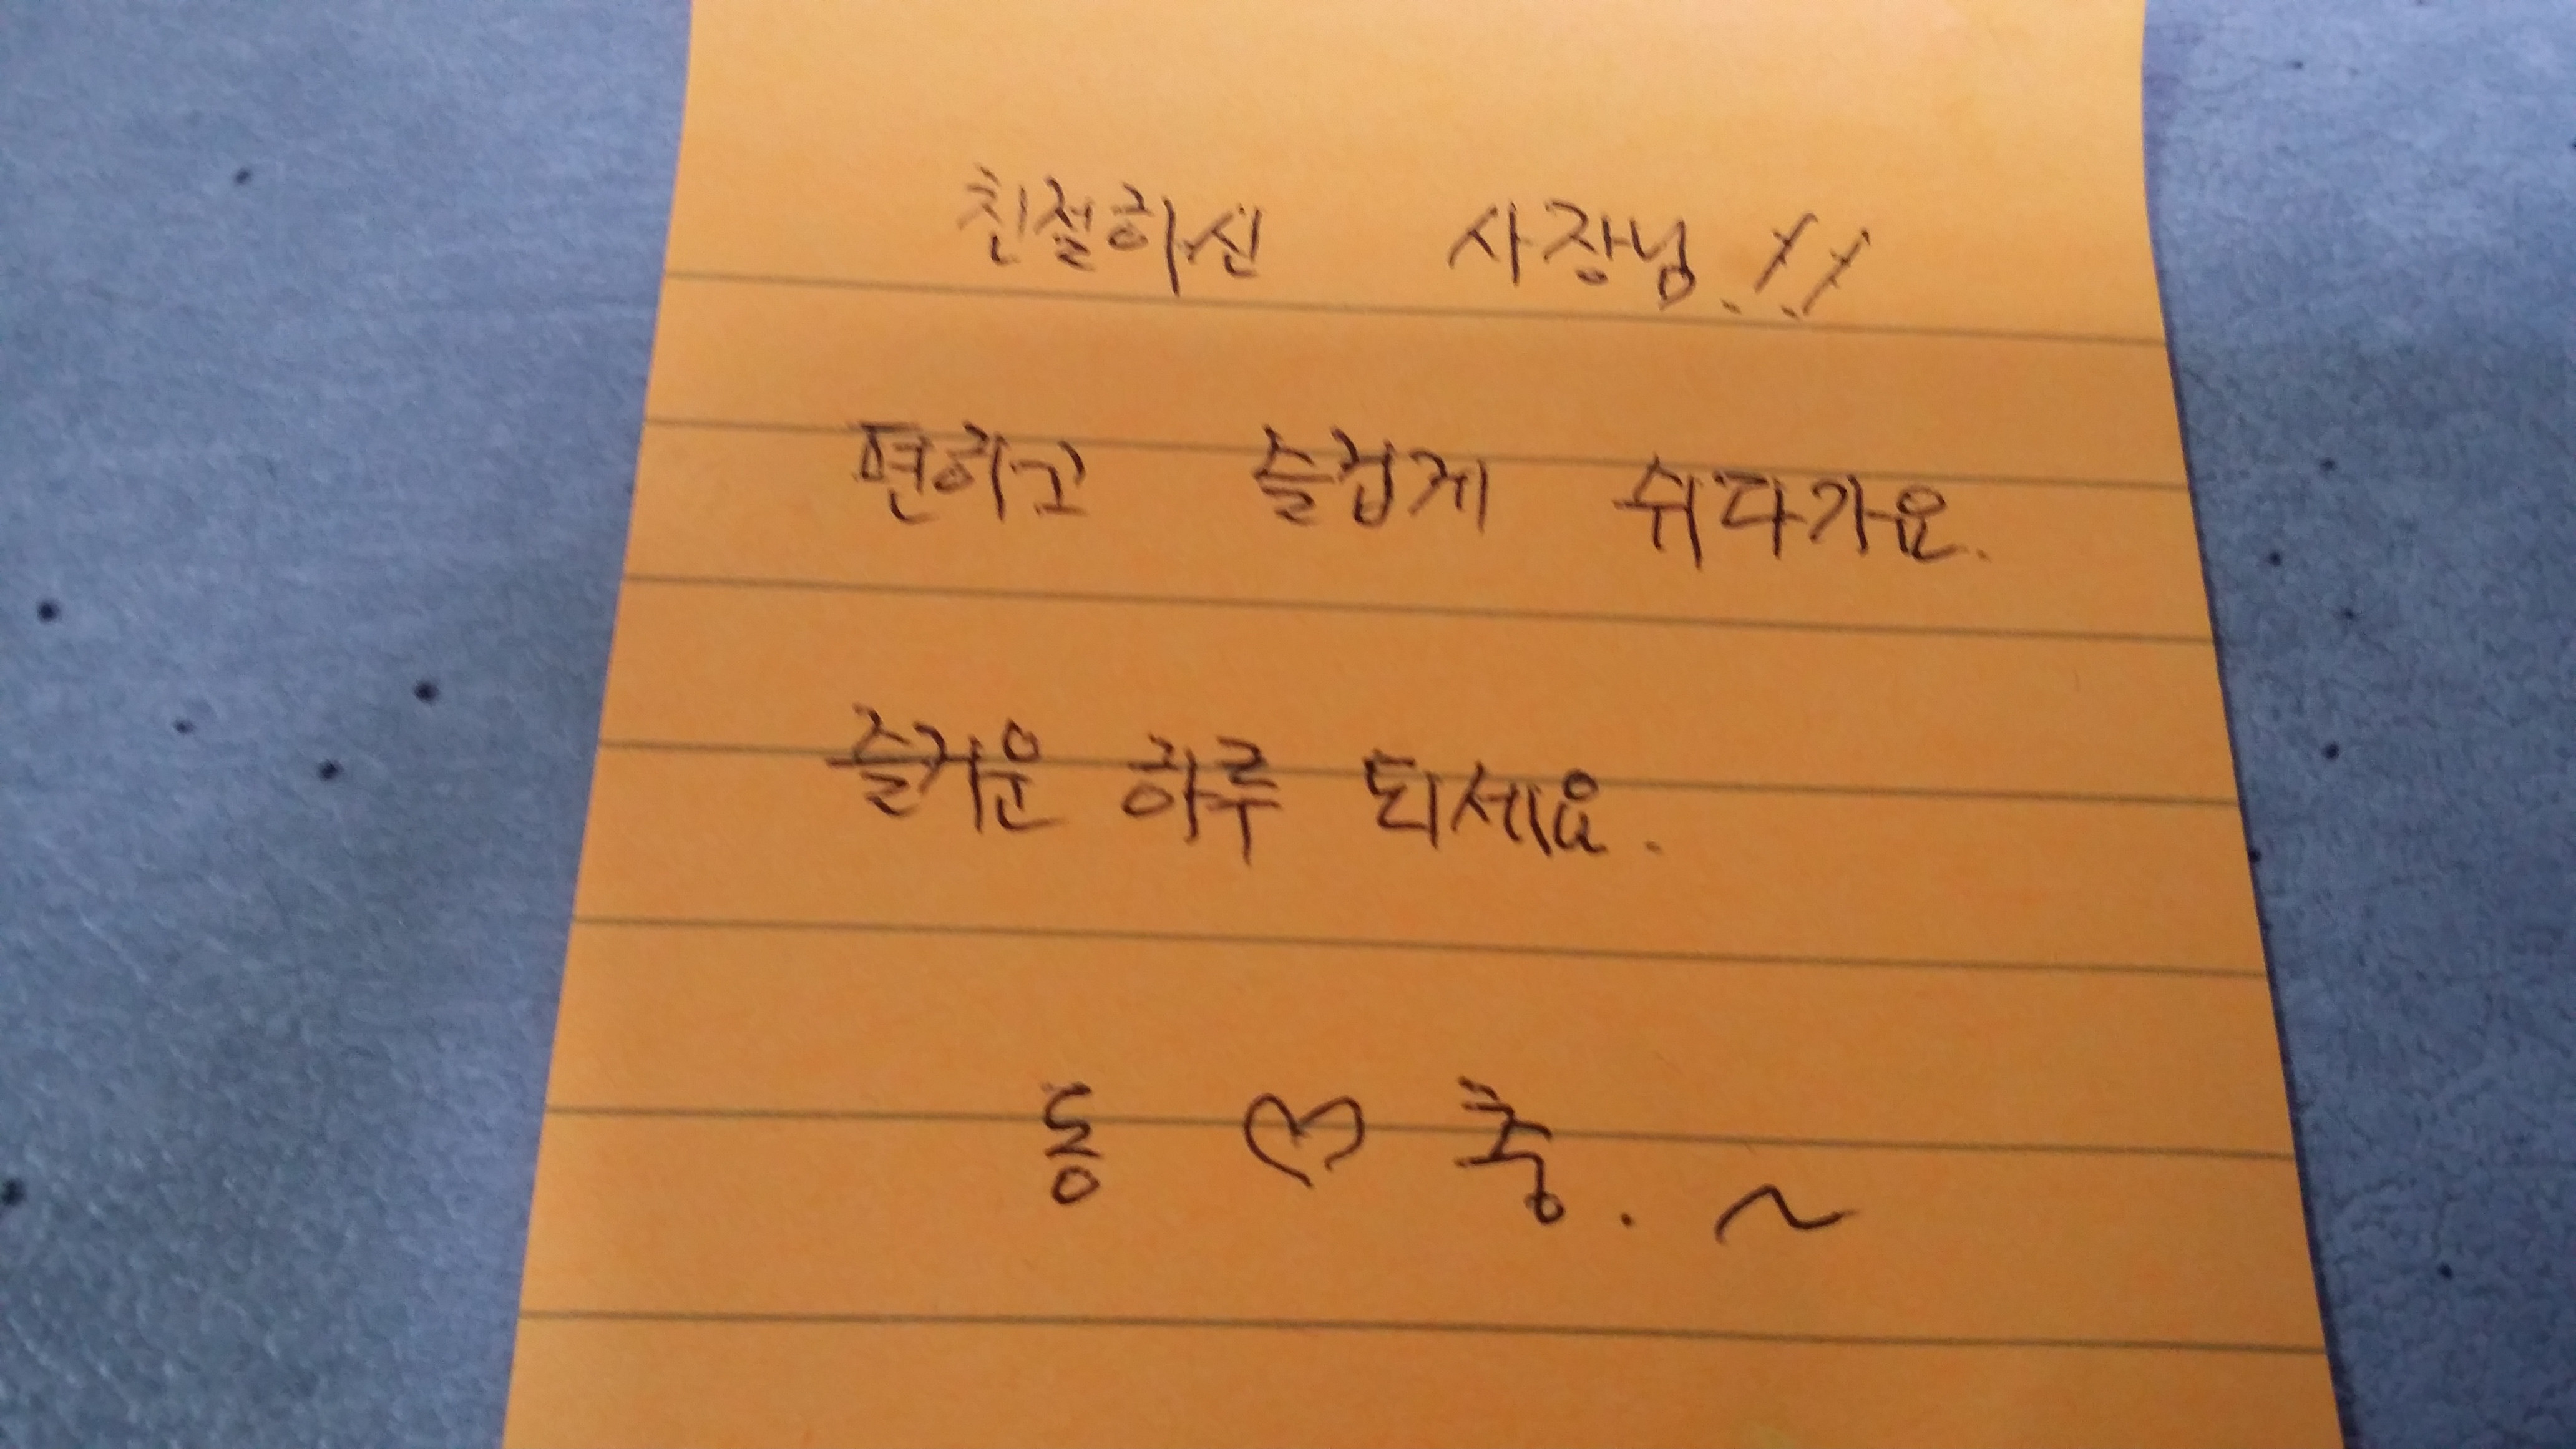 친절하신 사장님.!!
편하고 즐겁게 쉬다가요.
즐거운 하루 되세요.
동 ♡ 충.~